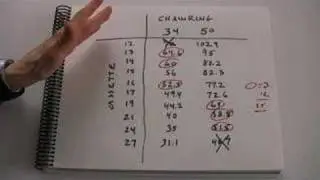 CHAINRING
34 50
12 102.9
13 64.6 95
14 60 88.2
15 56 82.3
16 52.5 77.2
17 49.4 72.6
19 44.2 65
21 40 58.8
24 35 51.5
27 31.1